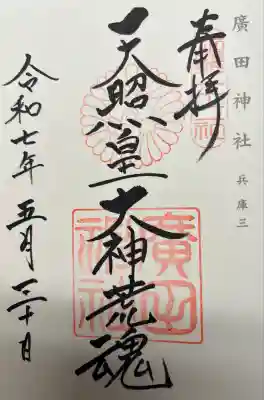 廣田神社 兵庫三
奉拝
天照皇大神荒魂
廣田神社
令和七年 五月三十日